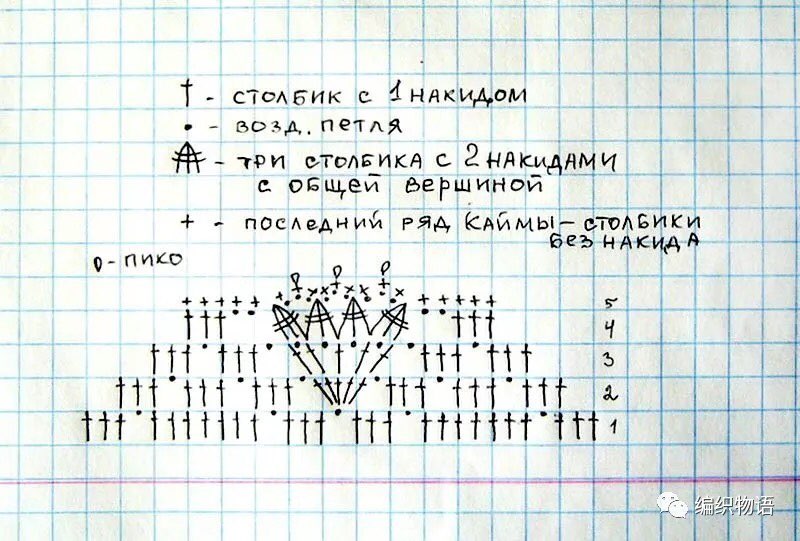 † - столбик с 1 накидом
• - возд. петля
- три столбика с 2 накидами
с общей вершиной
+ - последний ряд каймы - столбики
без накида
- пико
5
4
3
2
1
编织物语